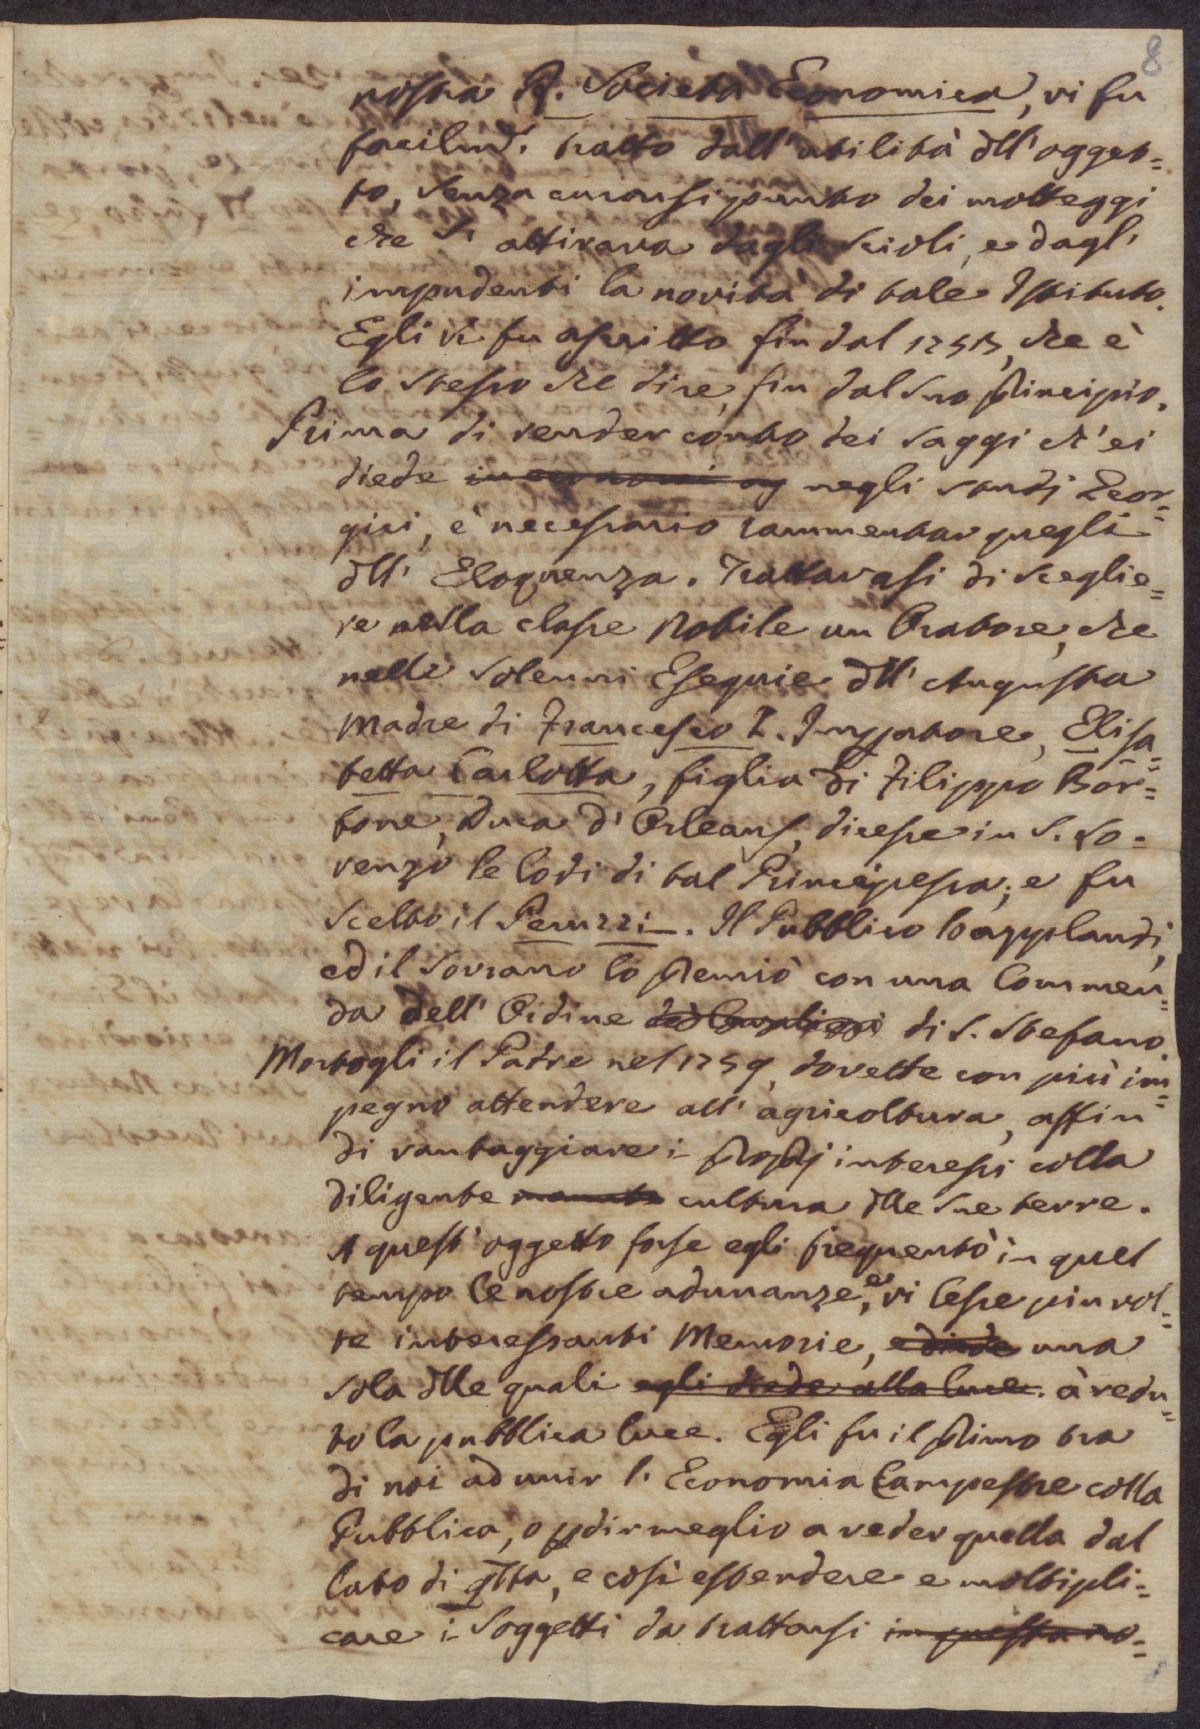 8
nostra R. Società Economica, vi fu
facilmᵉ. tratto dall' utilità dll' ogget=
to, senza curarsi punto dei motteggi
che si attirava dagli Scioli, e dagl'
impudenti la novità di tale Istituto.
Egli vi fu ascritto fin dal 1753, che è
lo stesso che dire, fin dal suo principio.
Prima di render conto dei saggi ch' ei
diede in economi og negli studj Geor=
gici, è necessario rammentar quegli
dll' Eloquenza. Trattavasi di sceglie=
re nella classe Nobile un Oratore, che
nelle solenni Esequie dll' Augusta
Madre di Francesco I. Imperatore, Elisa=
betta Carlotta, figlia di Filippo Bor=
bone, Duca d' Orleans, dicesse in S. Lo=
renzo le lodi di tal Principessa; e fu
scelto il Peruzzi. Il Pubblico lo applaudì,
ed il Sovrano lo premiò con una Commen=
da dell' Ordine dei Cavalieri di S. Stefano.
Mortogli il Padre nel 1759, dovette con più im=
pegno attendere all' agricoltura, affin
di vantaggiare i proprj interessi colla
diligente cultura dlle sue terre.
A quest' oggetto forse egli frequentò in quel
tempo le nostre adunanze, e vi lesse piu vol=
te interessanti Memorie, e diede una
sola dlle quali egli diede alla luce. à vedu=
to la pubblica luce. Egli fu il primo tra
di noi ad unir l' Economia Campestre colla
Pubblica, o p dir meglio a veder quella dal
lato di qsta, e così estendere e moltipli=
care i soggetti da trattarsi in questa no=